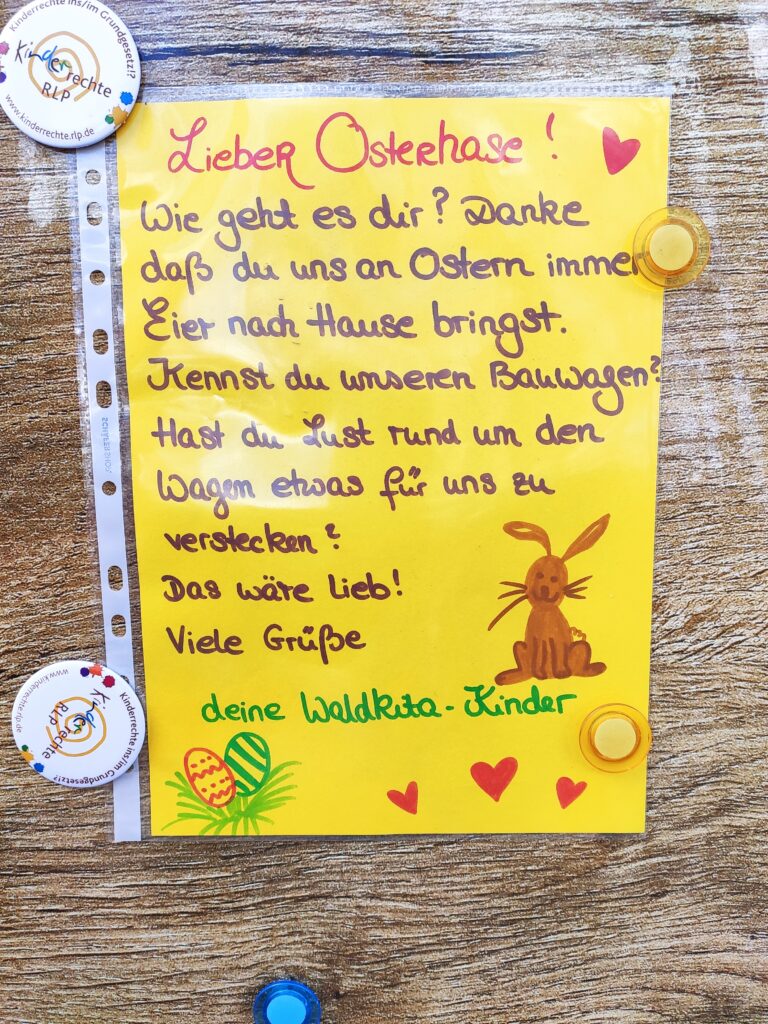 Kinderrechte ins/im Grundgesetz!?
Kinderrechte
RLP
www.kinderrechte.rlp.de
Lieber Osterhase!
Wie geht es dir? Danke
daß du uns an Ostern immer
Eier nach Hause bringst.
Kennst du unseren Bauwagen?
Hast du Lust rund um den
Wagen etwas für uns zu
verstecken?
Das wäre lieb!
Viele Grüße
deine Waldkita-Kinder
Kinderrechte ins/im Grundgesetz!?
Kinderrechte
RLP
www.kinderrechte.rlp.de